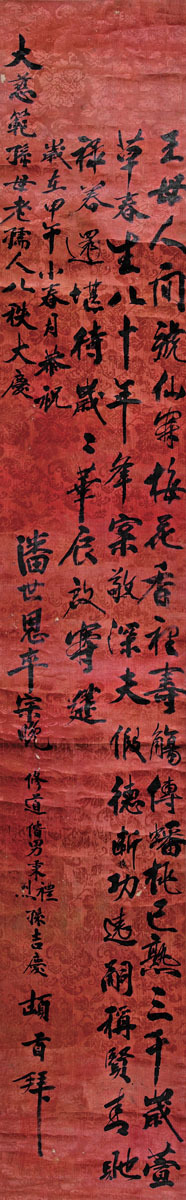 王母人间號仙窠梅花香裡壽觴傳蟠桃已熟三千歲萱
草春生八十年举案敬深夫假德断功遠嗣稱賢專馳
禄养還堪待歲々華辰啟壽筵
歲在甲午小春月恭祝
大慈範孫母老孺人八秩大慶
潘世恩率宗悅 修道 偕男秉禮 烈 孫吉慶 頓首拜